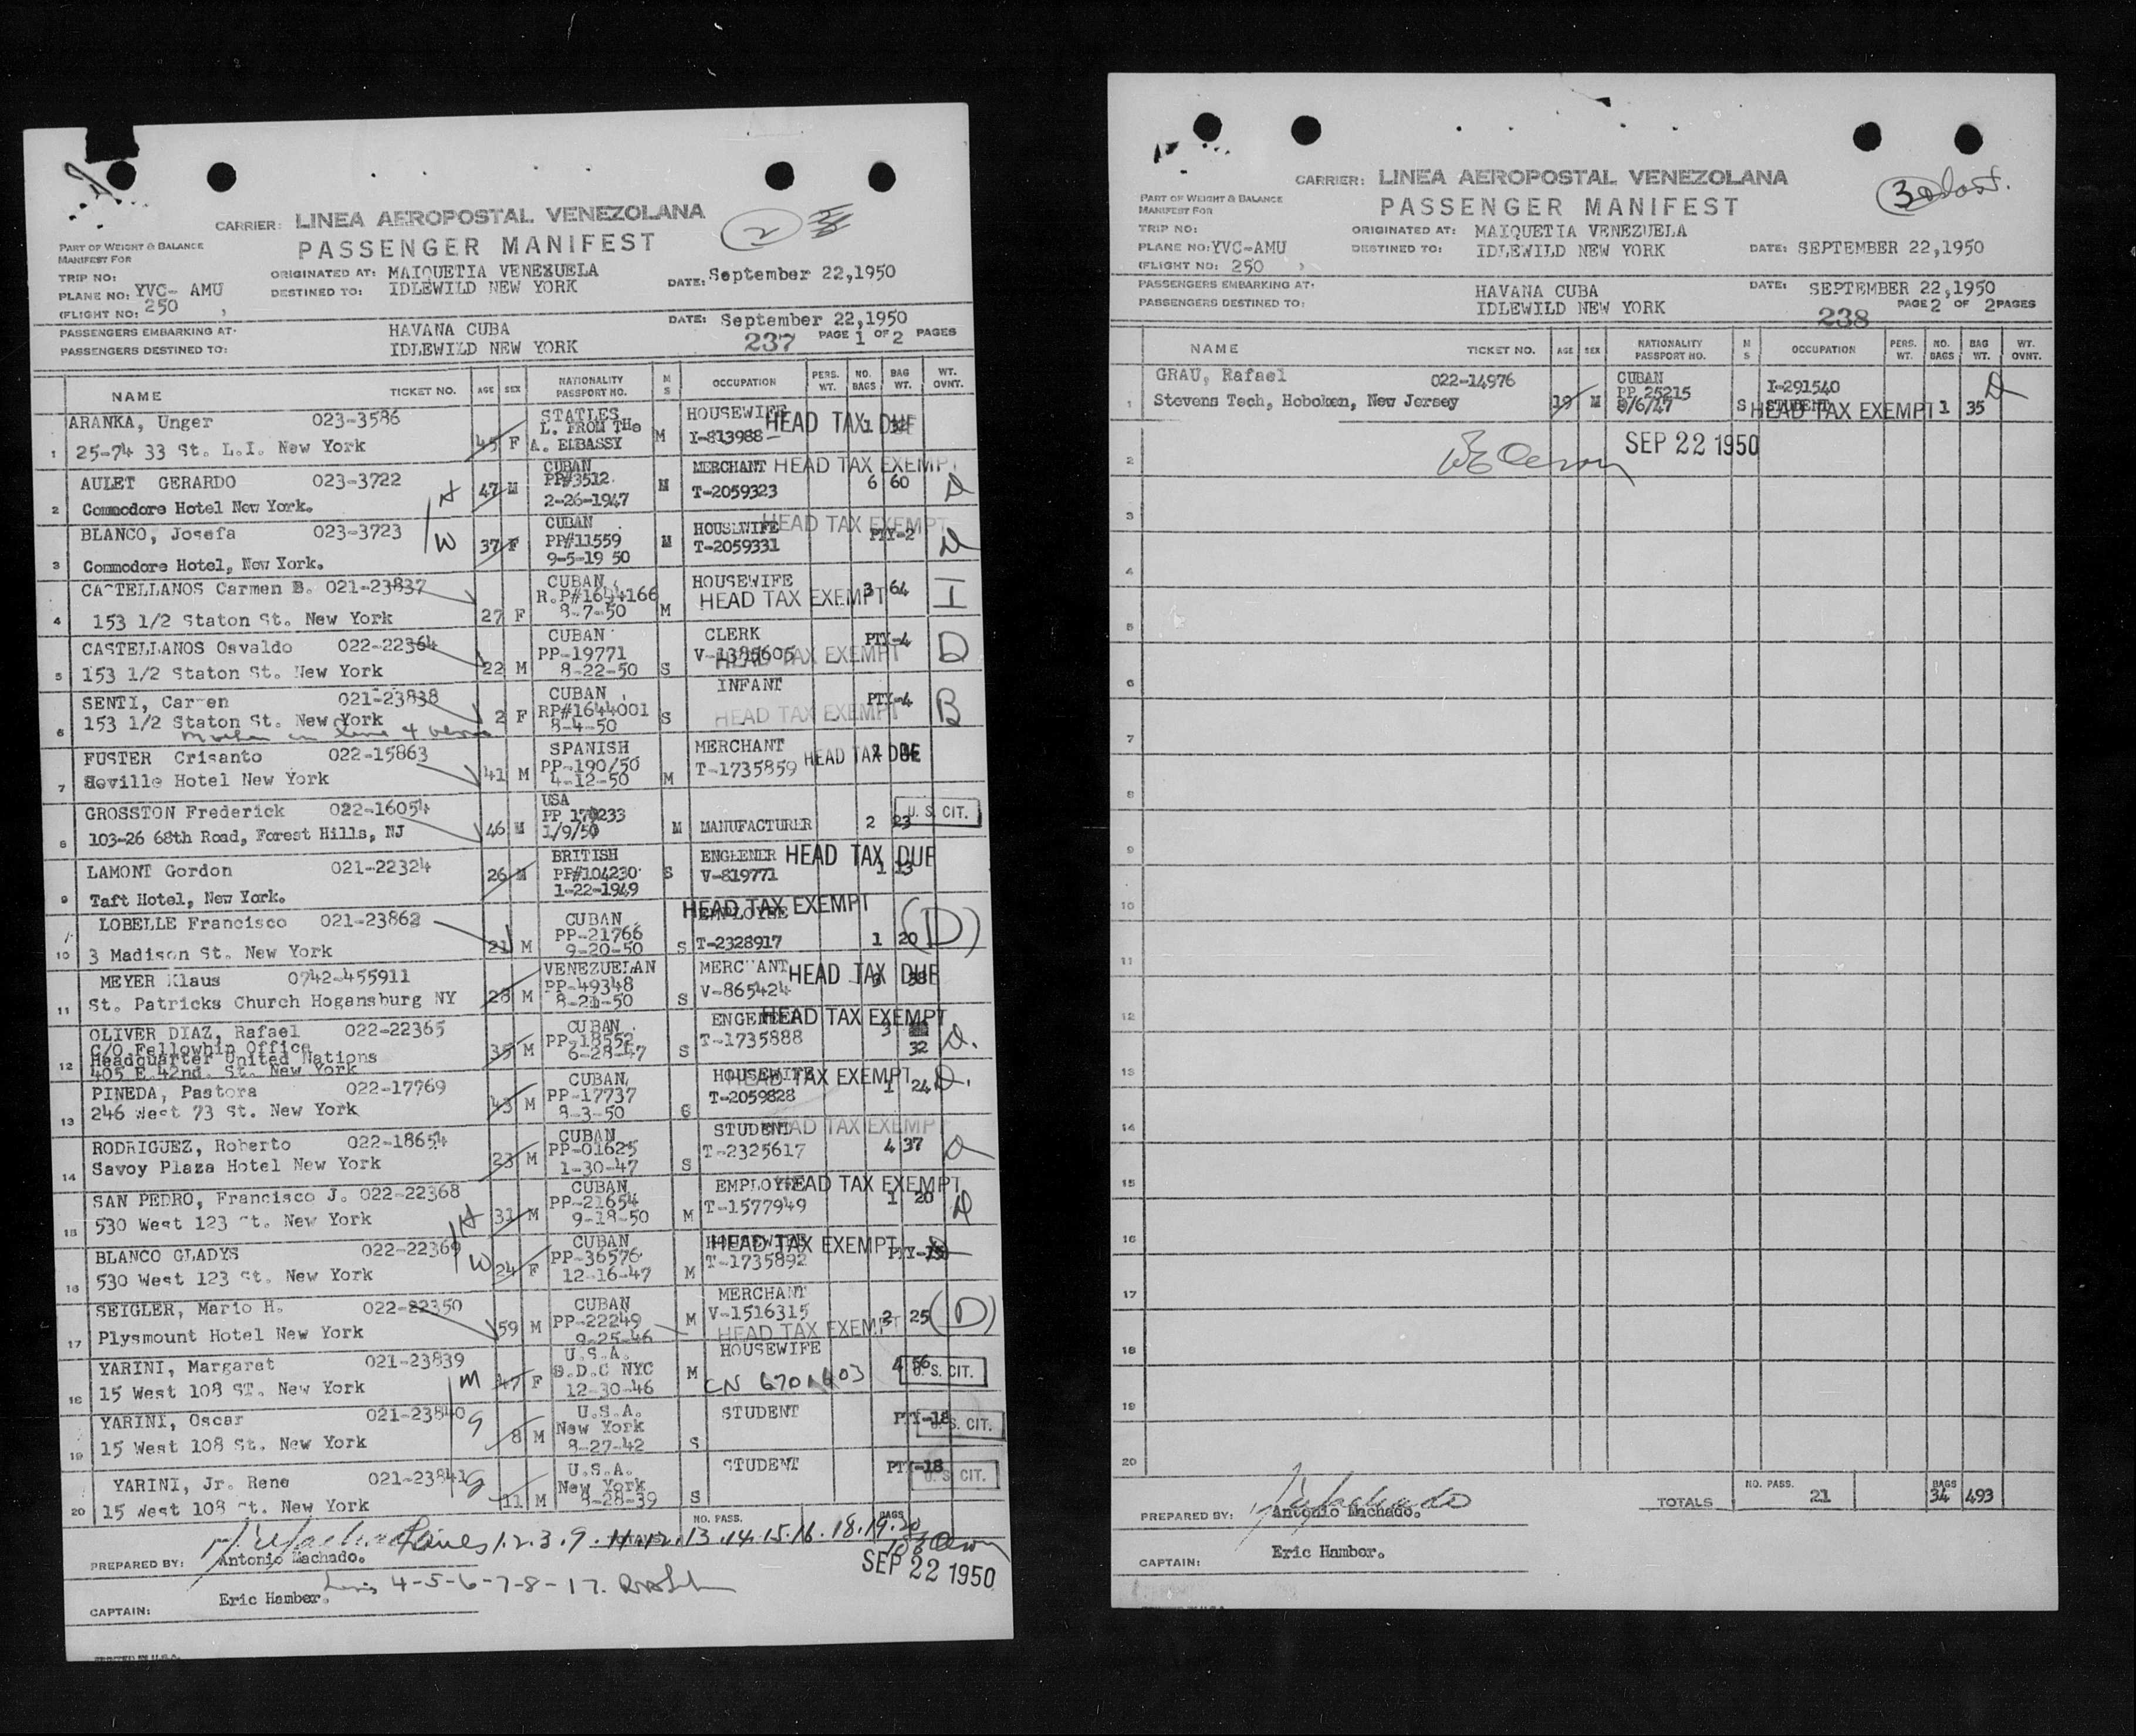 CARRIER: LINEA AEROPOSTAL VENEZOLANA
PASSENGER MANIFEST
2
PART OF WEIGHT & BALANCE
MANIFEST FOR
TRIP NO:
ORIGINATED AT: MAIQUETIA VENEZUELA
DATE: September 22,1950
PLANE NO: YVC- AMU
DESTINED TO: IDLEWILD NEW YORK
(FLIGHT NO: 250 ,
PASSENGERS EMBARKING AT: HAVANA CUBA
DATE: September 22,1950
PASSENGERS DESTINED TO: IDLEWILD NEW YORK
237 PAGE 1 OF 2 PAGES
NAME TICKET NO. AGE SEX NATIONALITY PASSPORT NO. M S OCCUPATION PERS. WT. NO. BAGS BAG WT. WT. OVNT.
ARANKA, Unger 023-3586 STATLES HOUSEWIFE HEAD TAX DUE
L. FROM THe
1 25-74 33 St. L.I. New York 45 F A. EMBASSY M I-813988 1
AULET GERARDO 023-3722 CUBAN MERCHANT HEAD TAX EXEMPT
H 47 M PP#3512 M T-2059323 6 60 D
2 Commodore Hotel New York. 2-26-1947
BLANCO, Josefa 023-3723 CUBAN HOUSEWIFE HEAD TAX EXEMPT
W 37 F PP#11559 M T-2059331 PTY-2 D
3 Commodore Hotel, New York. 9-5-19 50
CASTELLANOS Carmen B. 021-23837 CUBAN HOUSEWIFE
R.P#1644166 HEAD TAX EXEMPT 3 64 I
4 153 1/2 Staton St. New York 27 F 8-7-50 M
CASTELLANOS Osvaldo 022-22364 CUBAN CLERK PTY-4
PP-19771 V-1385605 HEAD TAX EXEMPT D
5 153 1/2 Staton St. New York 22 M 8-22-50 S
SENTI, Carmen 021-23838 CUBAN INFANT PTY-4
153 1/2 Staton St. New York 2 F RP#1644001 S HEAD TAX EXEMPT B
6 Mother in line 4 8-4-50
FUSTER Crisanto 022-15863 SPANISH MERCHANT HEAD TAX DUE
7 Seville Hotel New York 41 M PP-190/50 M T-1735859
4-12-50
GROSSTON Frederick 022-16054 USA U. S. CIT.
PP 170233
8 103-26 68th Road, Forest Hills, NJ 46 M 1/9/50 M MANUFACTURER 2 23
LAMONT Gordon 021-22324 BRITISH ENGLENER HEAD TAX DUE
26 M PP#104230 S V-819771 1 13
9 Taft Hotel, New York. 1-22-1949
LOBELLE Francisco 021-23862 CUBAN EMPLOYEE HEAD TAX EXEMPT
PP-21766 (D)
10 3 Madison St. New York 21 M 9-20-50 S T-2328917 1 20
MEYER Klaus 0742-455911 VENEZUELAN MERCHANT HEAD TAX DUE
PP-49348 V-865424
11 St. Patricks Church Hogansburg NY 28 M 8-21-50 S
OLIVER DIAZ, Rafael 022-22365 CUBAN ENGENEER HEAD TAX EXEMPT
C/O Fellowhip Office PP-18552 T-1735888 3
Headquarter United Nations 35 M 6-28-47 S 32 D.
12 405 E 42nd. St. New York
PINEDA, Pastora 022-17769 CUBAN HOUSEWIFE HEAD TAX EXEMPT
246 West 73 St. New York 43 M PP-17737 T-2059828 1 24 D.
13 8-3-50 S
RODRIGUEZ, Roberto 022-18654 CUBAN STUDENT HEAD TAX EXEMPT
Savoy Plaza Hotel New York 23 M PP-01625 T-2325617 4 37 D
14 1-30-47 S
SAN PEDRO, Francisco J. 022-22368 CUBAN EMPLOYEE HEAD TAX EXEMPT
530 West 123 St. New York H 31 M PP-21654 T-1577949 1 20 D
15 9-18-50 M
BLANCO GLADYS 022-22369 CUBAN HOUSEWIFE HEAD TAX EXEMPT
530 West 123 St. New York W 24 F PP-36576 T-1735892
16 12-16-47 M
SEIGLER, Mario H. 022-22350 CUBAN MERCHANT
59 M PP-22249 M V-1516315 2 25 (D)
17 Plysmount Hotel New York 9-25-46 HEAD TAX EXEMPT
YARINI, Margaret 021-23839 U.S.A. HOUSEWIFE
M 47 F S.D.C NYC M 4 56 U. S. CIT.
18 15 West 108 ST. New York 12-30-46 CN 6701603
YARINI, Oscar 021-23840 U.S.A. STUDENT PTY-18
8 M New York U. S. CIT.
19 15 West 108 St. New York 8-27-42 S
YARINI, Jr. Rene 021-23841 U.S.A. STUDENT PTY-18
11 M New York U. S. CIT.
20 15 West 108 St. New York 8-28-39 S
NO. PASS. BAGS
Lines 1.2.3.9.11.12.13.14.15.16.18.19.20
PREPARED BY: Antonio Machado.
SEP 22 1950
Lines 4-5-6-7-8-17.
CAPTAIN: Eric Hambor.
CARRIER: LINEA AEROPOSTAL VENEZOLANA
PASSENGER MANIFEST
3 & last.
PART OF WEIGHT & BALANCE
MANIFEST FOR
TRIP NO:
ORIGINATED AT: MAIQUETIA VENEZUELA
PLANE NO: YVC-AMU
DESTINED TO: IDLEWILD NEW YORK
DATE: SEPTEMBER 22,1950
(FLIGHT NO: 250 ,
PASSENGERS EMBARKING AT: HAVANA CUBA
DATE: SEPTEMBER 22,1950
PASSENGERS DESTINED TO: IDLEWILD NEW YORK
238 PAGE 2 OF 2 PAGES
NAME TICKET NO. AGE SEX NATIONALITY PASSPORT NO. M S OCCUPATION PERS. WT. NO. BAGS BAG WT. WT. OVNT.
GRAU, Rafael 022-14976 CUBAN I-291540 D
PP 25215
1 Stevens Tech, Hoboken, New Jersey 19 M 8/6/47 S STUDENT HEAD TAX EXEMPT 1 35
SEP 22 1950
2
3
4
5
6
7
8
9
10
11
12
13
14
15
16
17
18
19
20
TOTALS NO. PASS. 21 BAGS 34 493
PREPARED BY: Antonio Machado.
CAPTAIN: Eric Hambor.